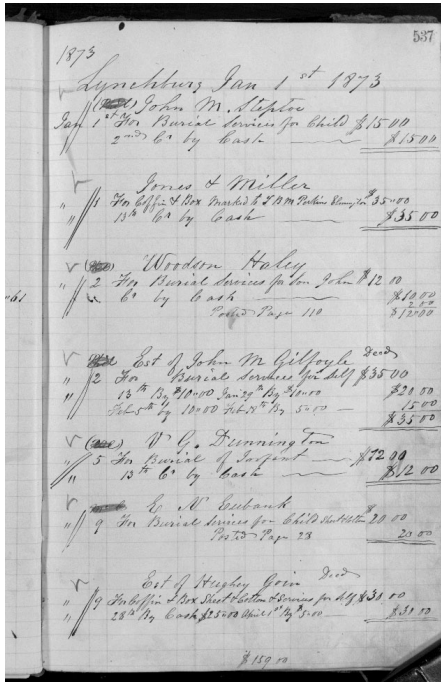 537
1873
Lynchburg Jan 1st 1873
John M. Steptoe
Jan 1st For Burial Services for Child $15 00
2nd Cr by Cash $15 00
Jones & Miller
" 1 For Coffin & Box Marked to T B M Perkins $35 00
" 13th Cr by Cash $35 00
Woodson Haley
" 2 For Burial Services for Son John $12 00
" Cr by Cash $10 00
2 00
Posted Page 110 $12 00
"61
Est of John M Gilfoyle Decd
" 2 For Burial Services for Self $35 00
" 13th By $10 00 Jan 29th By $10 00 $20 00
Feb 5th by 10 00 Feb By 5 00 15 00
$35 00
V. G. Dunnington
" 5 For Burial of Infant $12 00
" 13th Cr by Cash $12 00
E N Eubank
" 9 For Burial Services for Child $20 00
Posted Page 28 20 00
Est of Hughey Goin Decd
" 9 For Coffin & Box Sheet & Cotton & Services for Self $30 00
" 28th By Cash $25 00 April 1st By $5 00 $30 00
$159 00